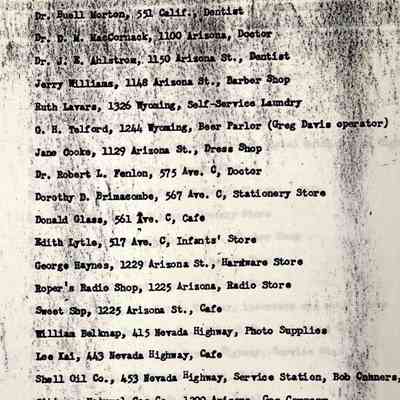 Dr. Buell Morton, 551 Calif., Dentist
Dr. D. M. MacCornack, 1100 Arizona, Doctor
Dr. J. E. Ahlstrom, 1150 Arizona St., Dentist
Jerry Williams, 1148 Arizona St., Barber Shop
Ruth Lavars, 1326 Wyoming, Self-Service Laundry
G. H. Telford, 1244 Wyoming, Beer Parlor (Greg Davis operator)
Jane Cooke, 1129 Arizona St., Dress Shop
Dr. Robert L. Fenlon, 575 Ave. C, Doctor
Dorothy D. Brimascombe, 567 Ave. C, Stationery Store
Donald Glass, 561 Ave. C, Cafe
Edith Lytle, 517 Ave. C, Infants' Store
George Haynes, 1229 Arizona St., Hardware Store
Roper's Radio Shop, 1225 Arizona, Radio Store
Sweet Shp, 1225 Arizona St., Cafe
William Belknap, 415 Nevada Highway, Photo Supplies
Lee Kai, 443 Nevada Highway, Cafe
Shell Oil Co., 453 Nevada Highway, Service Station, Bob Cohners,
Natural Gas Co., 1200 Arizona, Gas Company